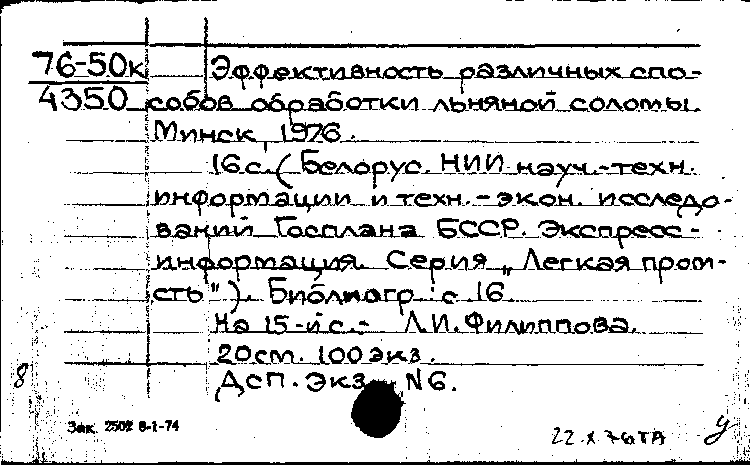 76-50к
4350
Эффективность различных спо-
собов обработки льняной соломы.
Минск, 1976.
16с. (Белорус. НИИ науч.-техн.
информации и техн.-экон. исследо-
ваний Госплана БССР. Экспресс-
информация. Серия „Легкая пром-
сть"). Библиогр.: с. 16.
На 15-й с.: Л.И. Филиппова.
20см. 100 экз.
Дсп. Экз. N6.
8
Зак. 2502 8-1-74
22.X.76
У